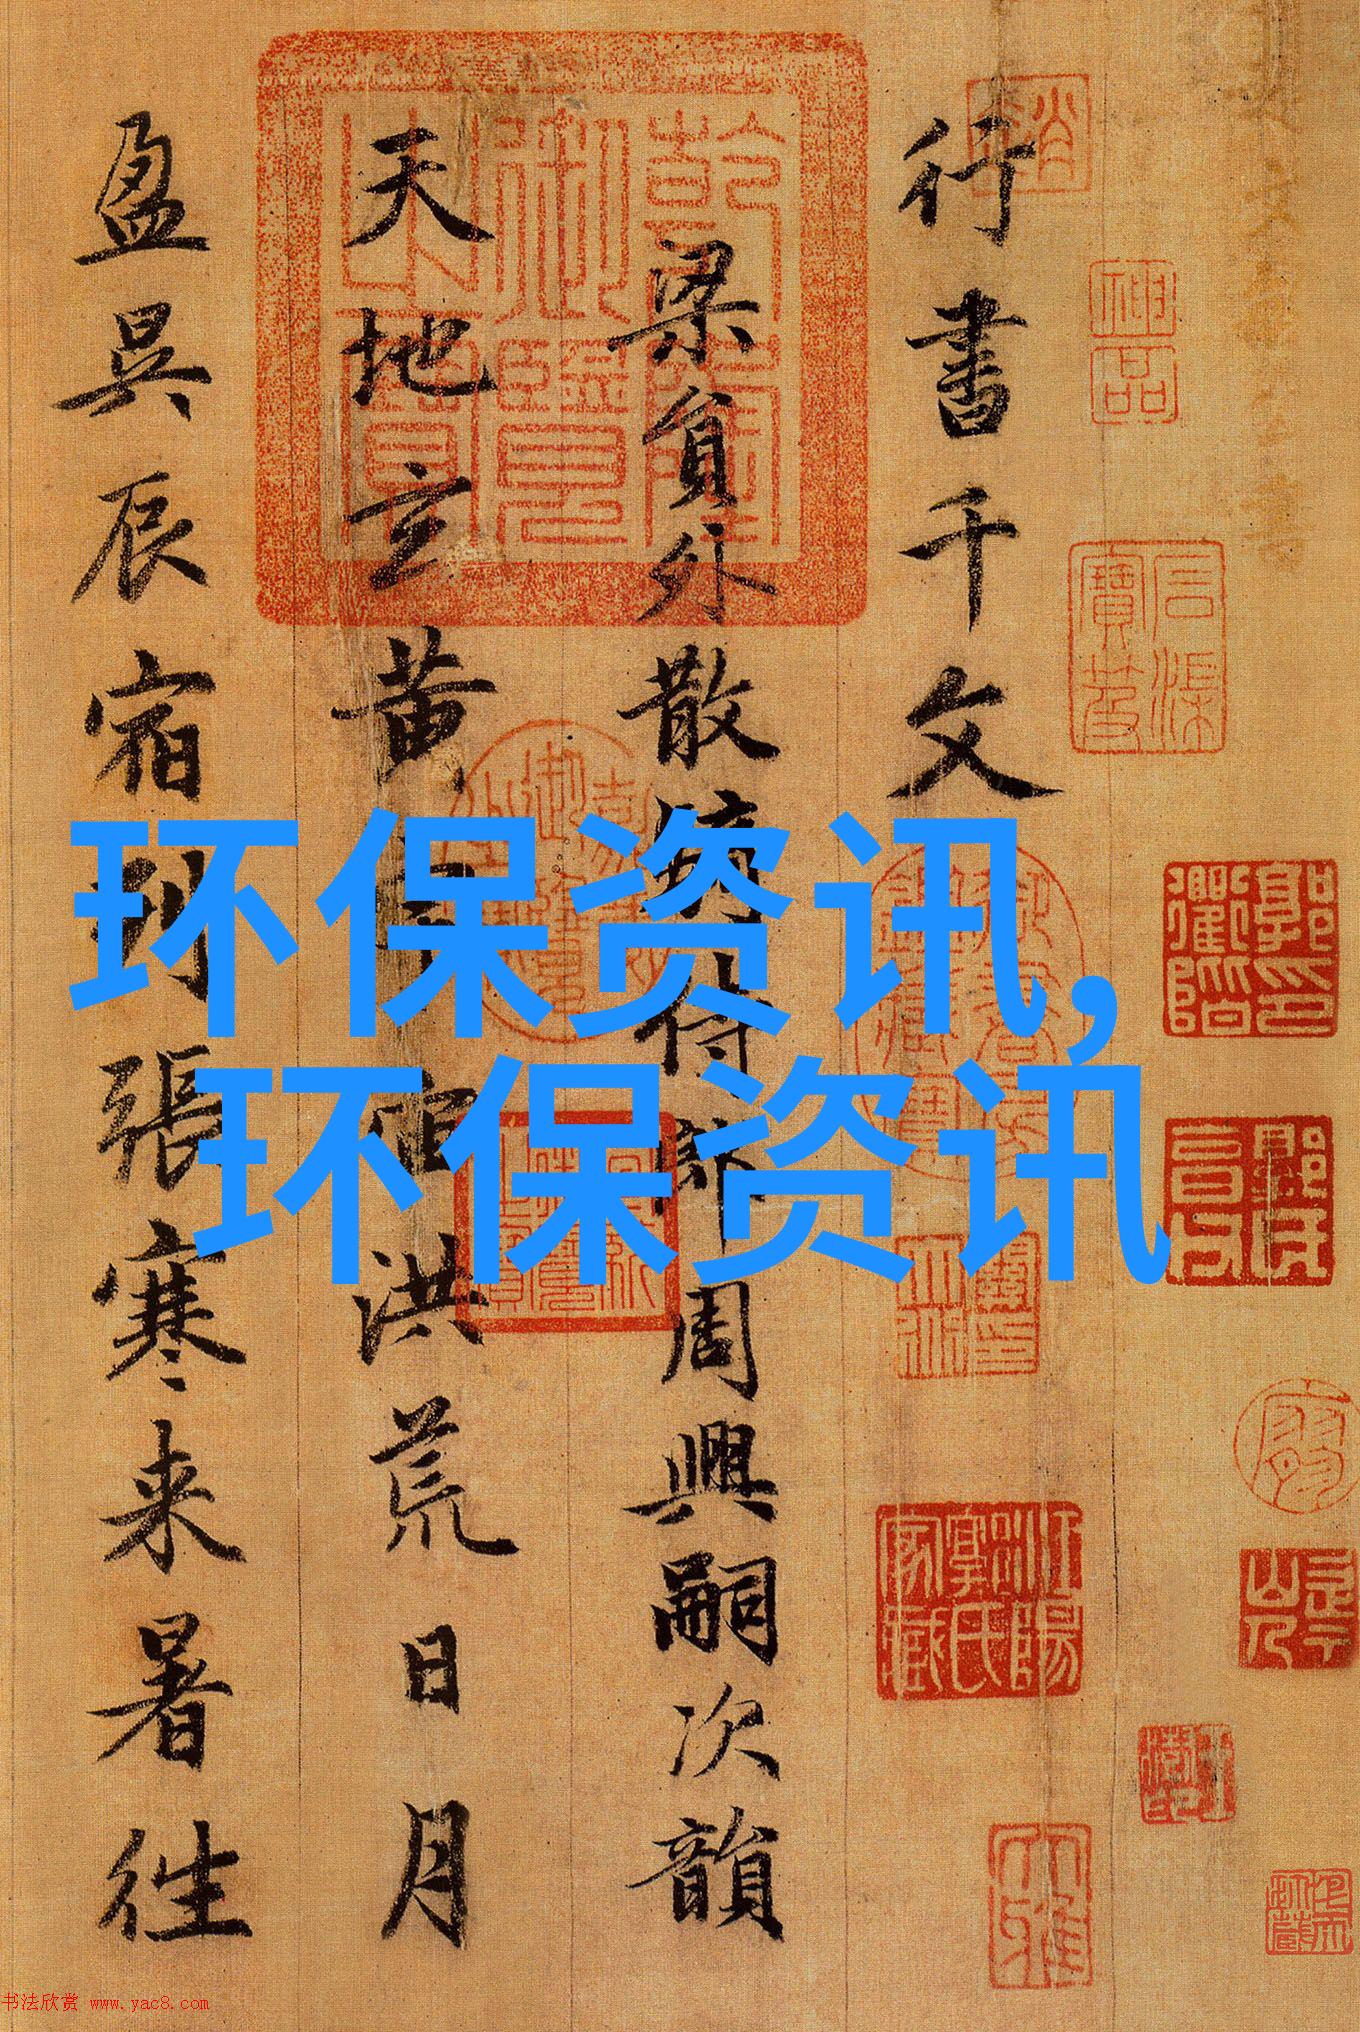 行書千文
梁貟外散騎侍郎周興嗣次韻
天地玄黄宇宙洪荒日月
盈昃辰宿列張寒来暑徃
环保资讯,
环保资讯
神品
石渠寶笈
大雅
书法欣赏 www.yac8.com